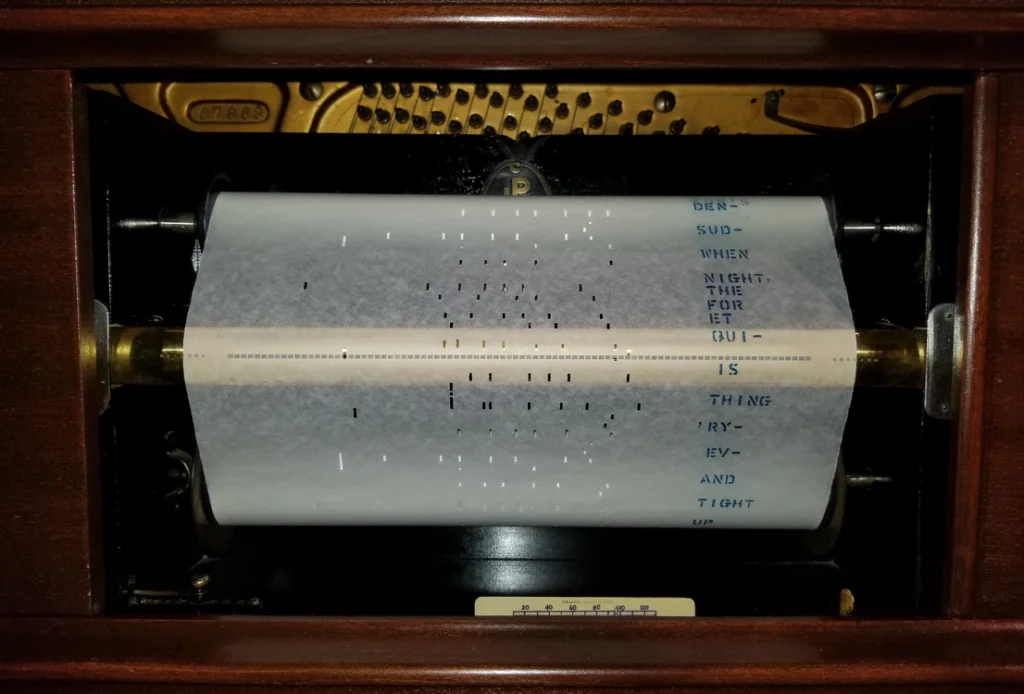 87888
P
DEN-
SUD-
WHEN
NIGHT,
THE
FOR
ET
QUI-
IS
THING
'RY-
EV-
AND
TIGHT
UP
20 40 60 80 100 120